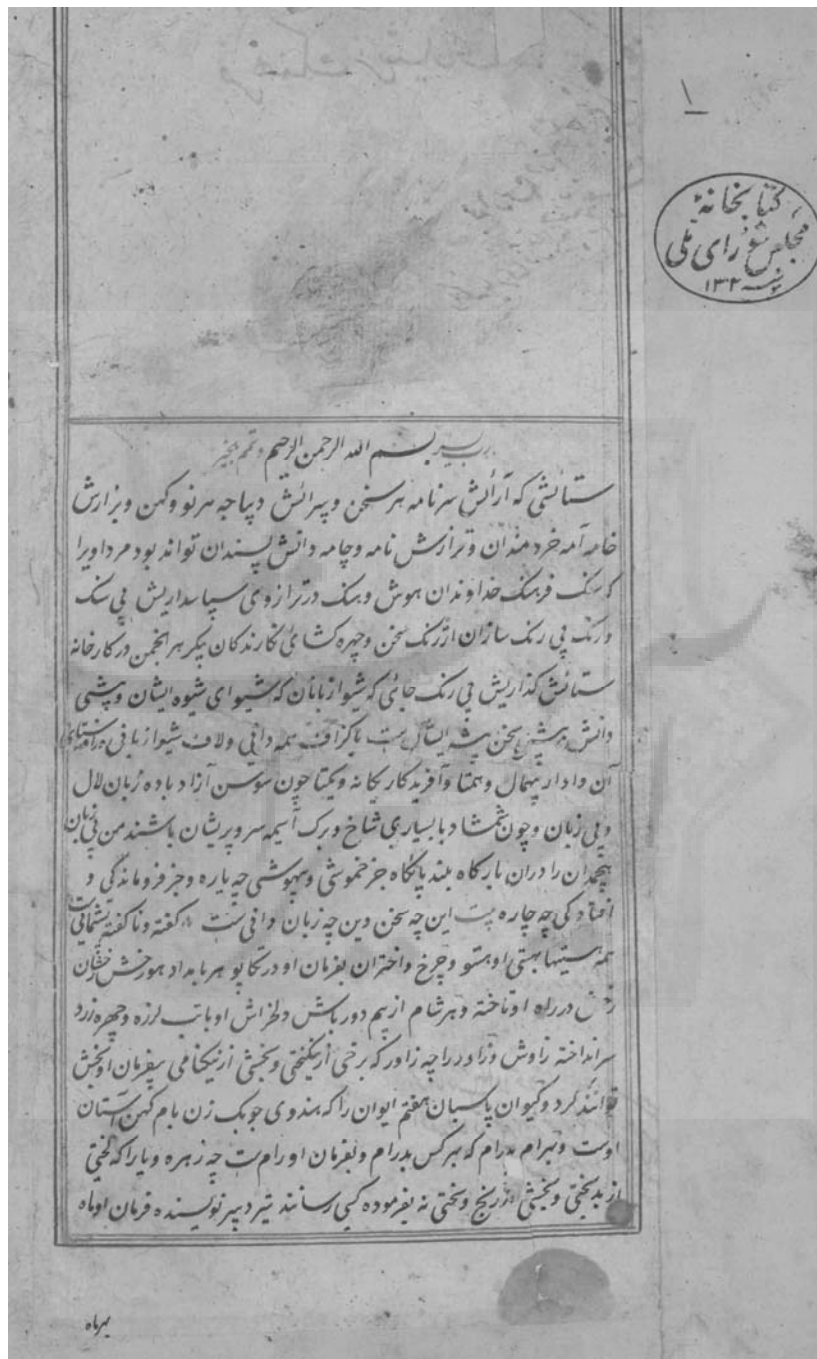 ۱
کتابخانهٔ
مجلس شورای ملی
بسم الله الرحمن الرحیم
ستائشی که آرائش سرنامه هر سخن و پیرائش دیباجه هر نو و کهن و بزارش
خامه آمه خردمندان و ترازش نامه و چامه دانش پسندان تواند بود مر داویرا
که سنک فرهنک خداوندان هوش و هنک در ترازوی سپاسداریش بی سنک
و رنک بی رنک سازان ارژنک سخن و چهره کشای نکارندکان پیکر هر انجمن در کارخانه
ستائش کذاریش بی رنک جائی که شیوا زبانان که شیوای شیوه ایشان و
دانش سخن پیشه ایشان ست با کزاف همه دانی و لاف شیوا زبانی در
آن دادار بیهمال و همتا و آفریدکار یکانه و یکتا چون سوسن آزاد با ده زبان لال
و بی زبان و چون شمشاد با بسیاری شاخ و برک آسیمه سر و پریشان باشند من بی زبان
هیچمدان را دران بارکاه بلند پایکاه جز خموشی و بیهوشی چه یاره و جز فروماندکی و
افتادکی چه چاره این چه سخن وین چه زبان دانی ست کفته و ناکفته پشیمانیست
همه هستیها بهستی او هستو و چرخ و اختران بفرمان او در تکاپو هر بامداد هور رخش رخشان
در راه او تاخته و هر شام از بیم دورباش دلخراش او با تب لرزه و چهره زرد
سر انداخته زاوش و زاور را چه زاور که برخی از نیکبختی و بخشی از نیکنامی بیفرمان او بخش
توانند کرد و کیوان پاسبان هفتم ایوان را که هندوی چوبک زن بام کهن آستان
اوست و بهرام بدرام که بهر کس بدرام و بفرمان او رام ست چه زهره و یارا که لختی
از بدبختی و بخشی از رنج و سختی نه بفرموده بکسی رسانند تیر دبیر نویسنده فرمان او ماه
بهرماه